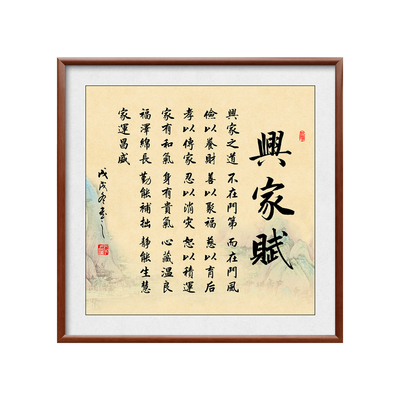 興家賦
興家之道 不在門第 而在門風
儉以養財 善以聚福 慈以育后
孝以傳家 忍以消災 恕以積運
家有和氣 身有貴氣 心藏溫良
福澤綿長 勤能補拙 靜能生慧
家運昌盛
戊戌冬